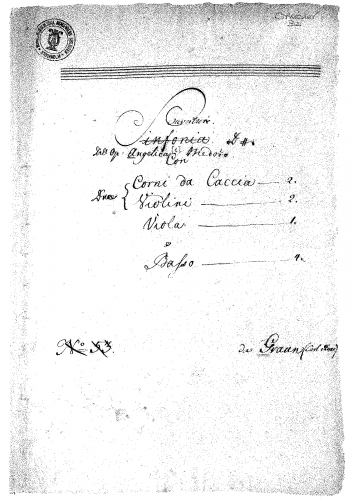 Ouverture
Sinfonia D#
Dell Op: Angelica e Medoro
Con
Due Corni da Caccia 2.
Violini 2.
Viola 1.
e
Basso
No 53.
Graun (Carl Henr)